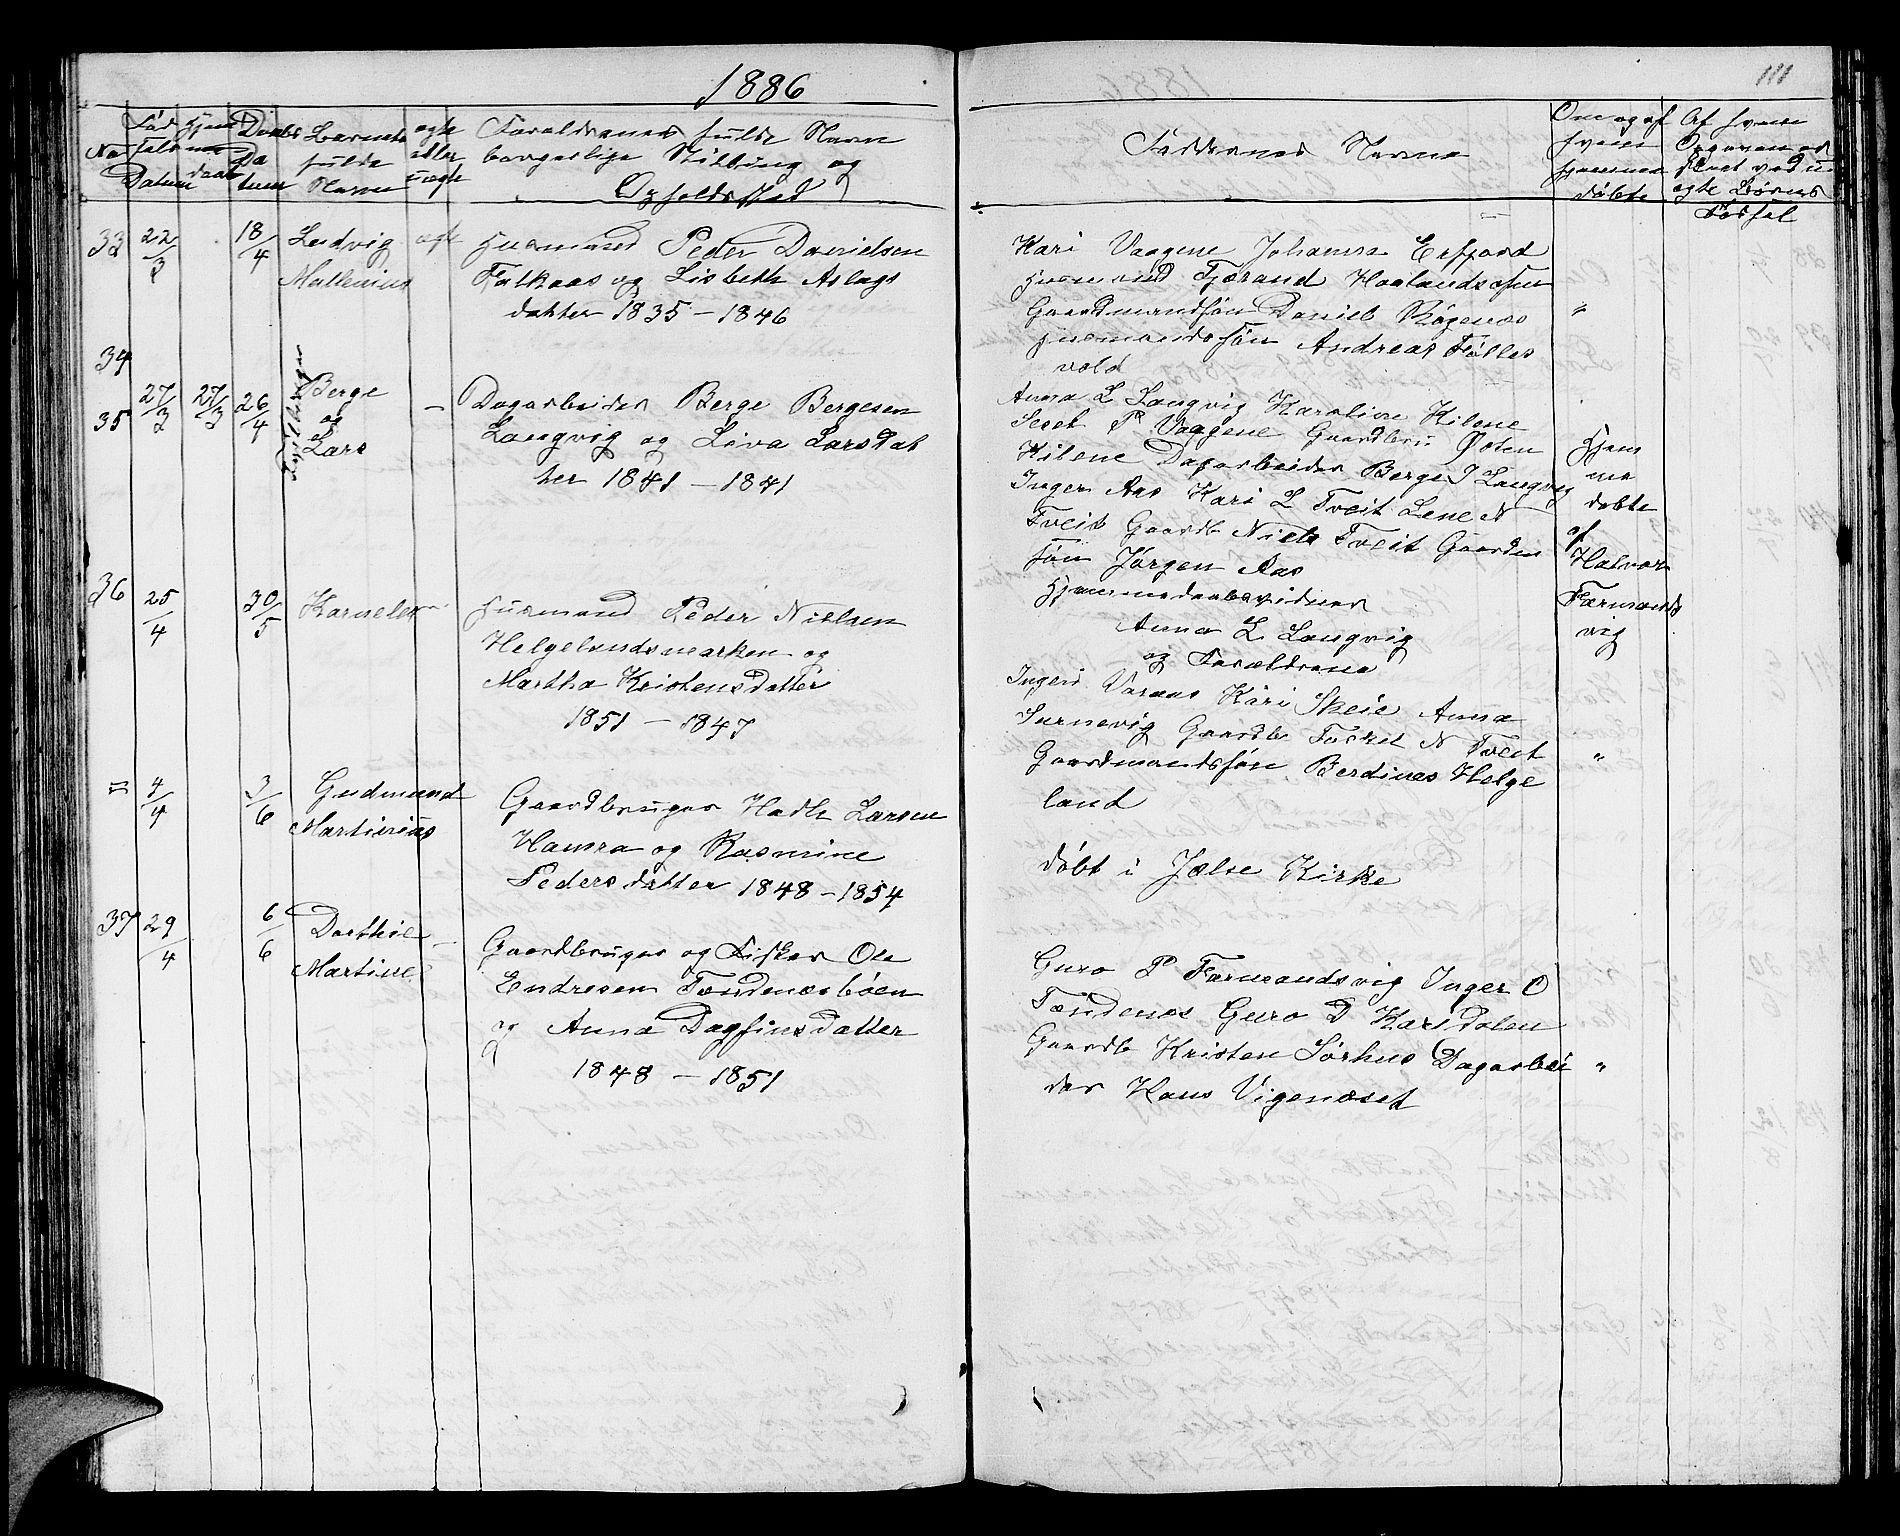 1886
111
No
Fødselens Datum
Hjem daab
Daabs Datum
Barnets fulde Navn
ægte eller uægte
Forældrenes fulde Navn
borgerlige Stilling og
Opholdssted
Faddernes Navne
Om og af
hvem
hjemme
døbte
Af hvem
Opgaven er
skeet ved u
ægte Børns
Fødsel
33 22/3 18/4 Ludvig ægte Husmand Peder Danielsen
Mallenius Falkaas og Lisbeth Aslags
datter 1835 - 1846
Kari Vaagene Johanna Erfjord
Husmand Tjærand Haalandsosen
Gaardmandsøn Daniel Røgenæs "
Husmandssøn Andreas Tølles
vold
34
35 27/3 27/3 26/4 Berge
og
Lars
Tvillinger
- Dagarbeider Berge Bergesen
Langvig og Siva Larsdat
ter 1841 - 1841
Anna L Langvig Karoline Kilene
Seset P Vaagene Gaardbru Østen
Kilene Dagarbeider Berge J Langvig
Inger Aas Kari L Tveit Lene N
Tveit Gaardb Niels Tveit Gaardm
søn Jørgen Aas
Hjemmedaabsvidner
Anna L Langvig
og Forældrene
Hjem
me
døbte
af
Halvor
Færmands
vig
36 25/4 30/5 Karnelen - Husmand Peder Nielsen
Helgelandsmarken og
Martha Kristensdatter
1851 - 1847
Ingeri Varaas Kari Skeie Anna
Surnevig Gaardb Torkel N Tveit
Gaardmandsøn Berdines Helge "
land
= 4/4 3/6 Gudmund
Martinius
Gaardbruger Hadle Larsen
Hamra og Rasmine
Pedersdatter 1848 - 1854
døbt i Jælse Kirke
37 29/4 6/6 Dorthie -
Martine
Gaardbruger og Fisker Ole
Endresen Tendenesbøen
og Anna Dagfinsdatter
1848 - 1851
Guro P Færmandsvig Inger O
Tendenes Guro D Karsdalen
Gaardb Kristen Sørhus Dagarbei "
der Hans Vigenæset